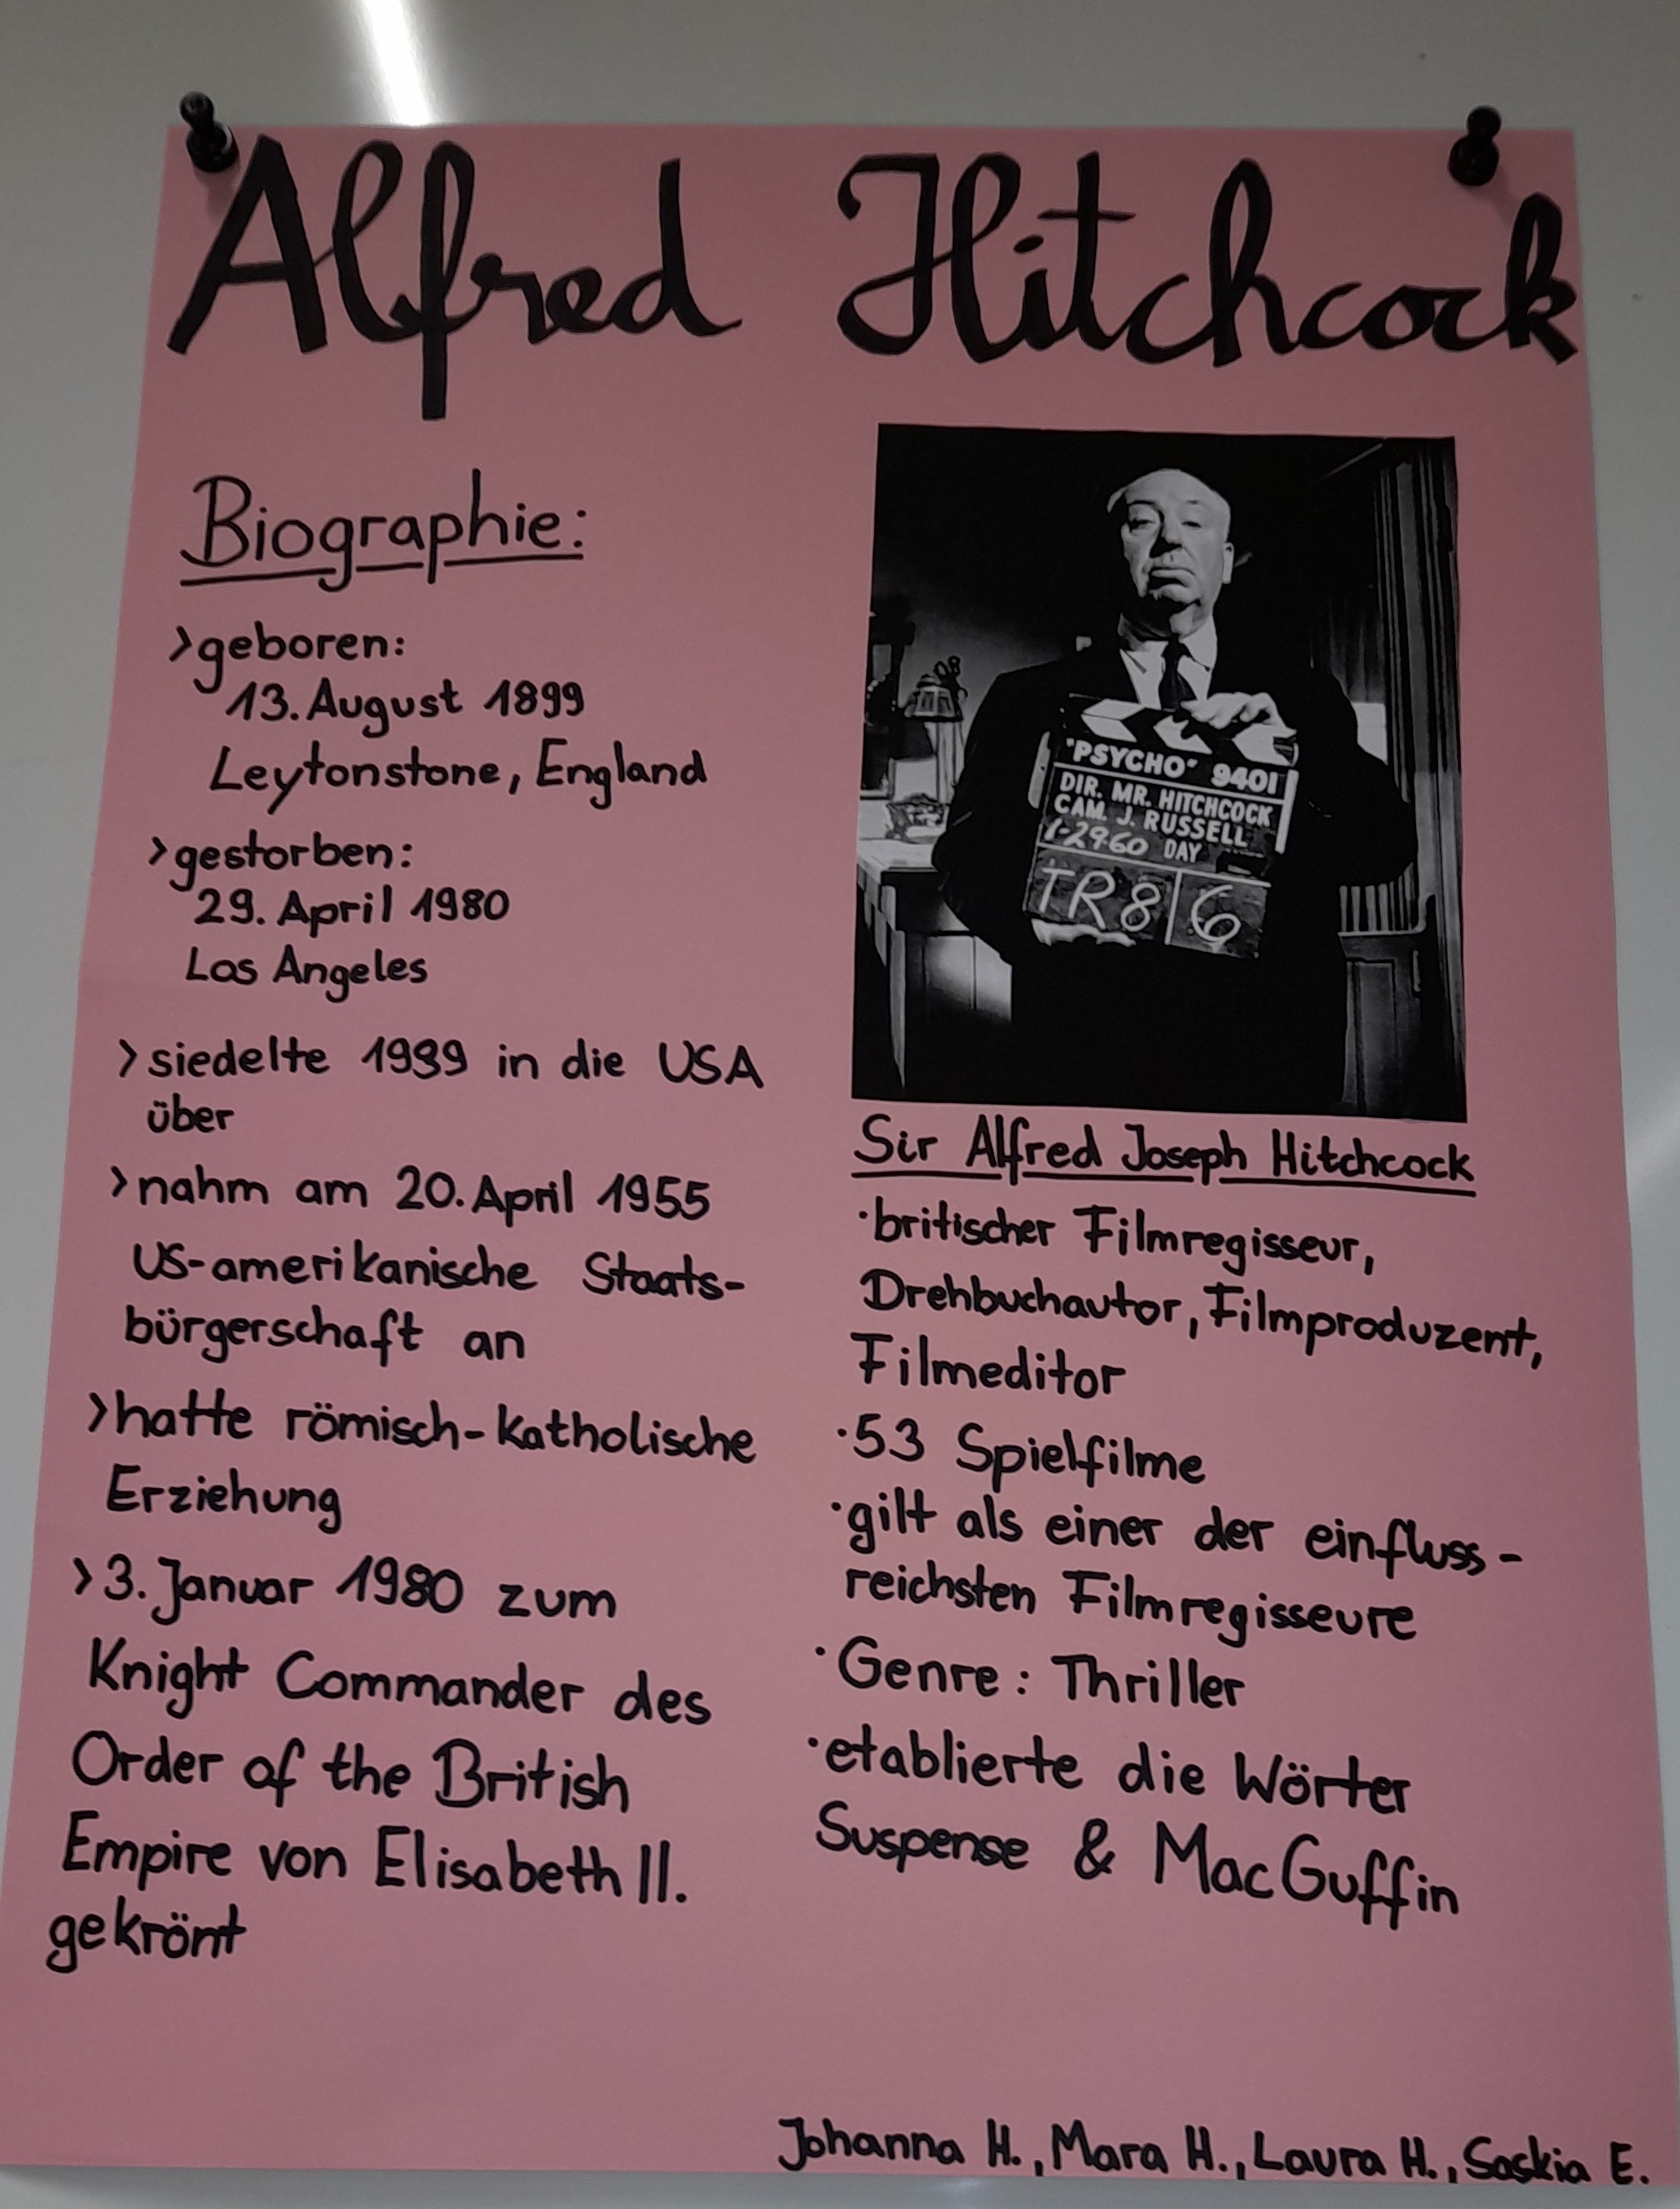 Alfred Hitchcock
Biographie:
>geboren:
13. August 1899
Leytonstone, England
>gestorben:
29. April 1980
Los Angeles
>siedelte 1939 in die USA
über
>nahm am 20. April 1955
US-amerikanische Staats-
bürgerschaft an
>hatte römisch-katholische
Erziehung
>3. Januar 1980 zum
Knight Commander des
Order of the British
Empire von Elisabeth II.
gekrönt
"PSYCHO" 9401
DIR. MR. HITCHCOCK
CAM. J. RUSSELL
1-29-60 DAY
TR8 6
Sir Alfred Joseph Hitchcock
·britischer Filmregisseur,
Drehbuchautor, Filmproduzent,
Filmeditor
·53 Spielfilme
·gilt als einer der einfluss-
reichsten Filmregisseure
·Genre: Thriller
·etablierte die Wörter
Suspense & MacGuffin
Johanna H., Mara H., Laura H., Saskia E.